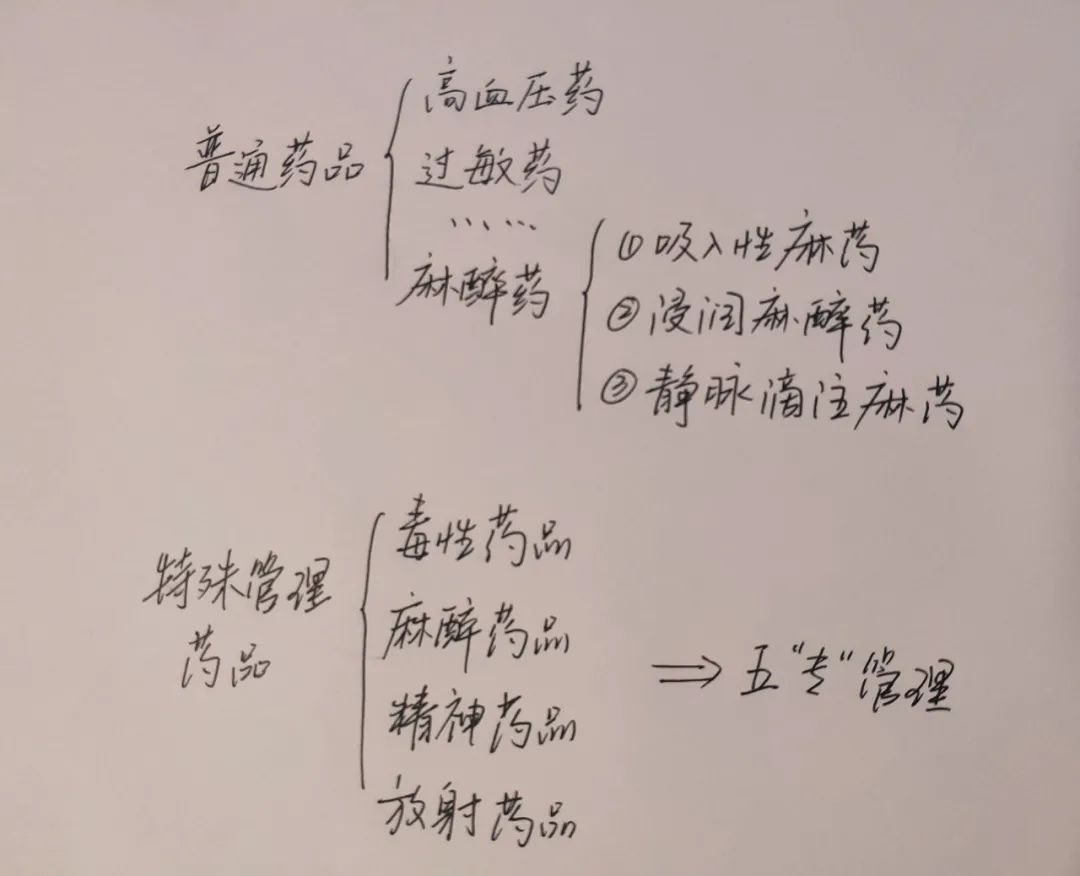 普通药品
高血压药
过敏药
……
麻醉药
①吸入性麻药
②浸润麻醉药
③静脉滴注麻药
特殊管理
药品
毒性药品
麻醉药品
精神药品
放射药品
⇒五"专"管理